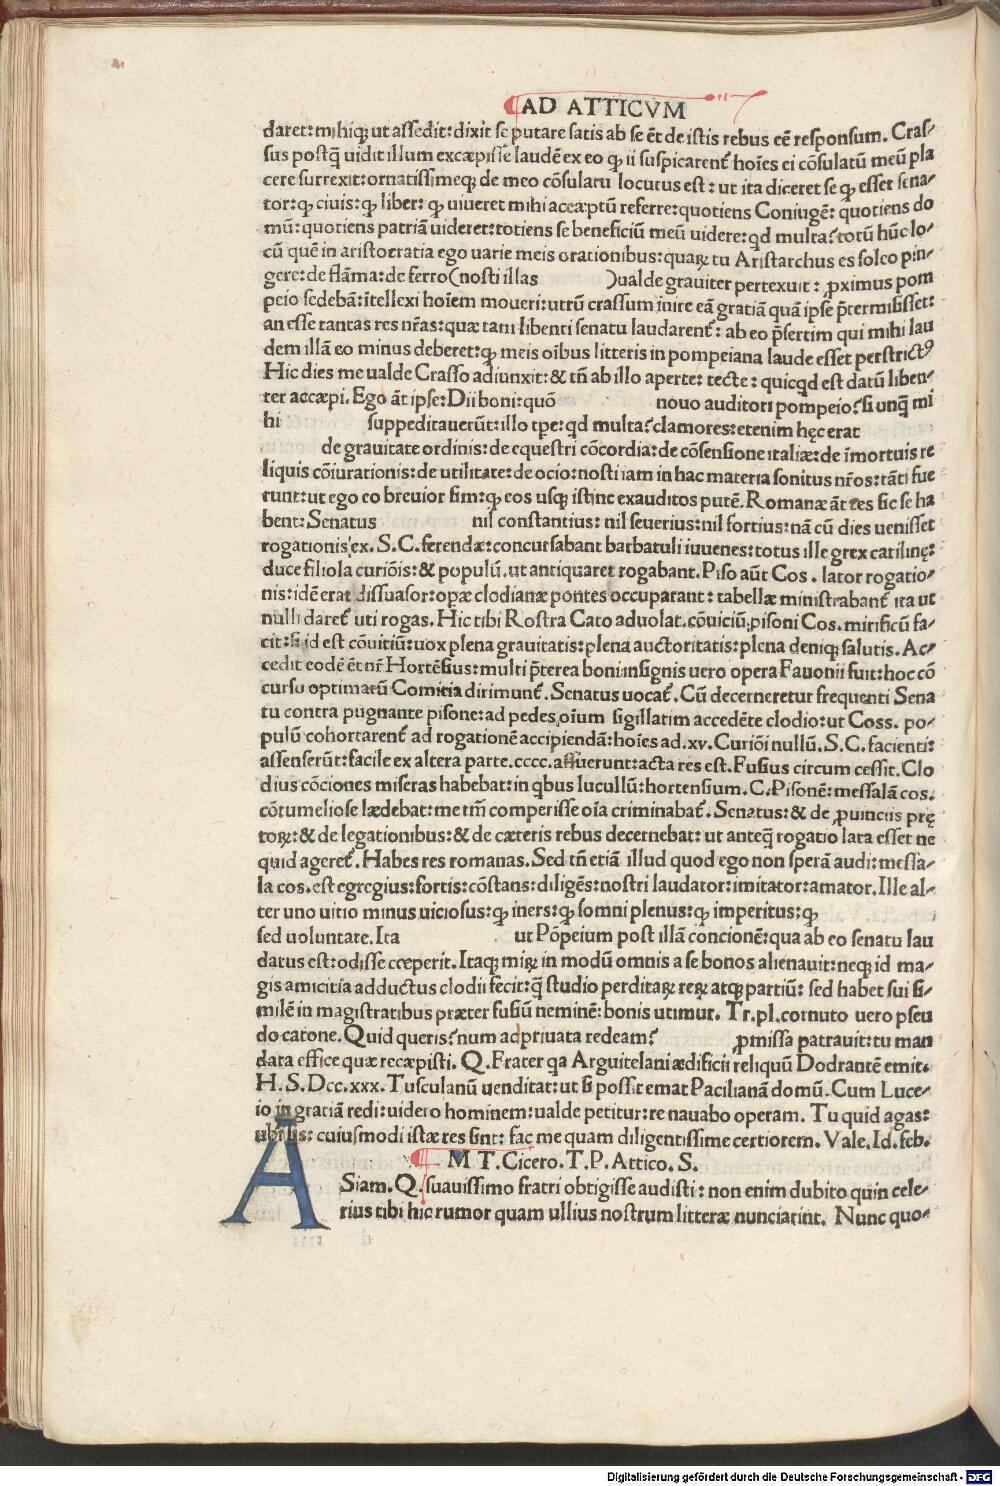 AD ATTICVM
daret: mihiqꝫ ut assedit: dixit se putare satis ab se ēt de istis rebus eē responsum. Cras⸗
sus postq̄ uidit illum excæpisse laudē ex eo qꝫ ii suspicarent᷑ hoīes ei cōsulatū meū pla
cere surrexit: ornatissimeqꝫ de meo cōsulatu locutus est: ut ita diceret se qꝫ esset sena⸗
tor: qꝫ ciuis: qꝫ liber: qꝫ uiueret mihi acceptū referre: quotiens Coniugē: quotiens do
mū: quotiens patriā uideret: totiens se beneficiū meū uidere: qd multa? totū hūc lo⸗
cū quē in aristocratia ego uarie meis orationibus: quaꝝ tu Aristarchus es soleo pin⸗
gere: de flāma: de ferro (nosti illas ) ualde grauiter pertexuit: ꝓximus pom
peio sedebā: ītellexi hoīem moueri: utrū crassum inire eā gratiā quā ipse p̄termisisset:
an esse tantas res nr̄as: quæ tam libenti senatu laudarent᷑: ab eo p̄sertim qui mihi lau
dem illā eo minus deberet: qꝫ meis oībus litteris in pompeiana laude esset perstrictꝰ
Hic dies me ualde Crasso adiunxit: & tn̄ ab illo aperte: tecte: quicqd est datū liben⸗
ter accæpi. Ego āt ipse: Dii boni: quō nouo auditori pompeio? si unq̄ mi
hi suppeditauerūt: illo tp̄e: qd multa? clamores: etenim hęc erat
de grauitate ordinis: de equestri cōcordia: de cōsensione italiæ: de īmortuis re
liquis cōiurationis: de utilitate: de ocio: nosti iam in hac materia sonitus nr̄os: tāti fue
runt: ut ego eo breuior sim: qꝫ eos usqꝫ istinc exauditos putē. Romanæ āt res sic se ha
bent: Senatus nil constantius: nil seuerius: nil fortius: nā cū dies uenisset
rogationis ex. S. C. ferendæ: concursabant barbatuli iuuenes: totus ille grex catilinę:
duce filiola curiōis: & populū. ut antiquaret rogabant. Piso aūt Cos. lator rogatio⸗
nis: idē erat dissuasor: opæ clodianæ pontes occuparant: tabellæ ministrabant᷑ ita ut
nulli daret᷑ uti rogas. Hic tibi Rostra Cato aduolat. cōuiciū, pisoni Cos. mirificū fa⸗
cit: si id est cōuitiū: uox plena grauitatis: plena auctoritatis: plena deniqꝫ salutis. Ac⸗
cedit eodē ēt nr̄ Hortēsius: multi p̄terea boni: insignis uero opera Fauonii fuit: hoc cō
cursu optimatū Comitia dirimunt᷑. Senatus uocat᷑. Cū decerneretur frequenti Sena
tu contra pugnante pisone: ad pedes oīum sigillatim accedēte clodio: ut Coss. po⸗
pulū cohortarent᷑ ad rogationē accipiendā: hoīes ad .xv. Curiōi nullū. S. C. facienti:
assenserūt: facile ex altera parte. cccc. affuerunt: acta res est. Fusius circum cessit. Clo
dius cōciones miseras habebat: in qbus lucullū: hortensium. C. Pisonē: messalā cos.
cōtumeliose lædebat: me tm̄ comperisse oīa criminabat᷑. Senatus: & de ꝓuinciis prę
toꝝ: & de legationibus: & de cæteris rebus decernebat: ut anteq̄ rogatio lata esset ne
quid ageret᷑. Habes res romanas. Sed tn̄ etiā illud quod ego non sperā audi: messa⸗
la cos. est egregius: fortis: cōstans: diligēs: nostri laudator: imitator: amator. Ille al⸗
ter uno uitio minus uiciosus: qꝫ iners: qꝫ somni plenus: qꝫ imperitus: qꝫ
sed uoluntate. Ita ut Pōpeium post illā concionē: qua ab eo senatu lau
datus est: odisse cœperit. Itaqꝫ miꝝ in modū omnis a se bonos alienauit: neqꝫ id ma⸗
gis amicitia adductus clodii fecit: q̄ studio perditaꝝ reꝝ atqꝫ partiū: sed habet sui si⸗
milē in magistratibus præter fusiū neminē: bonis utimur. Tr. pl. cornuto uero pseu
do catone. Quid queris? num ad priuata redeam? ꝓmissa patrauit: tu man
data effice quæ recæpisti. Q. Frater qa Arguitelani ædificii reliquū Dodrantē emit.
H. S. Dcc. xxx. Tusculanū uenditat: ut si possit emat Pacilianā domū. Cum Luce⸗
io in gratiā redi: uidero hominem: ualde petitur: re nauabo operam. Tu quid agas:
ubi sis: cuiusmodi istæ res sint: fac me quam diligentissime certiorem. Vale. Id. feb.
M T. Cicero. T. P. Attico. S.
ASiam. Q. suauissimo fratri obtigisse audisti: non enim dubito quin cele⸗
rius tibi hic rumor quam ullius nostrum litteræ nunciarint. Nunc quo⸗
Digitalisierung gefördert durch die Deutsche Forschungsgemeinschaft - DFG